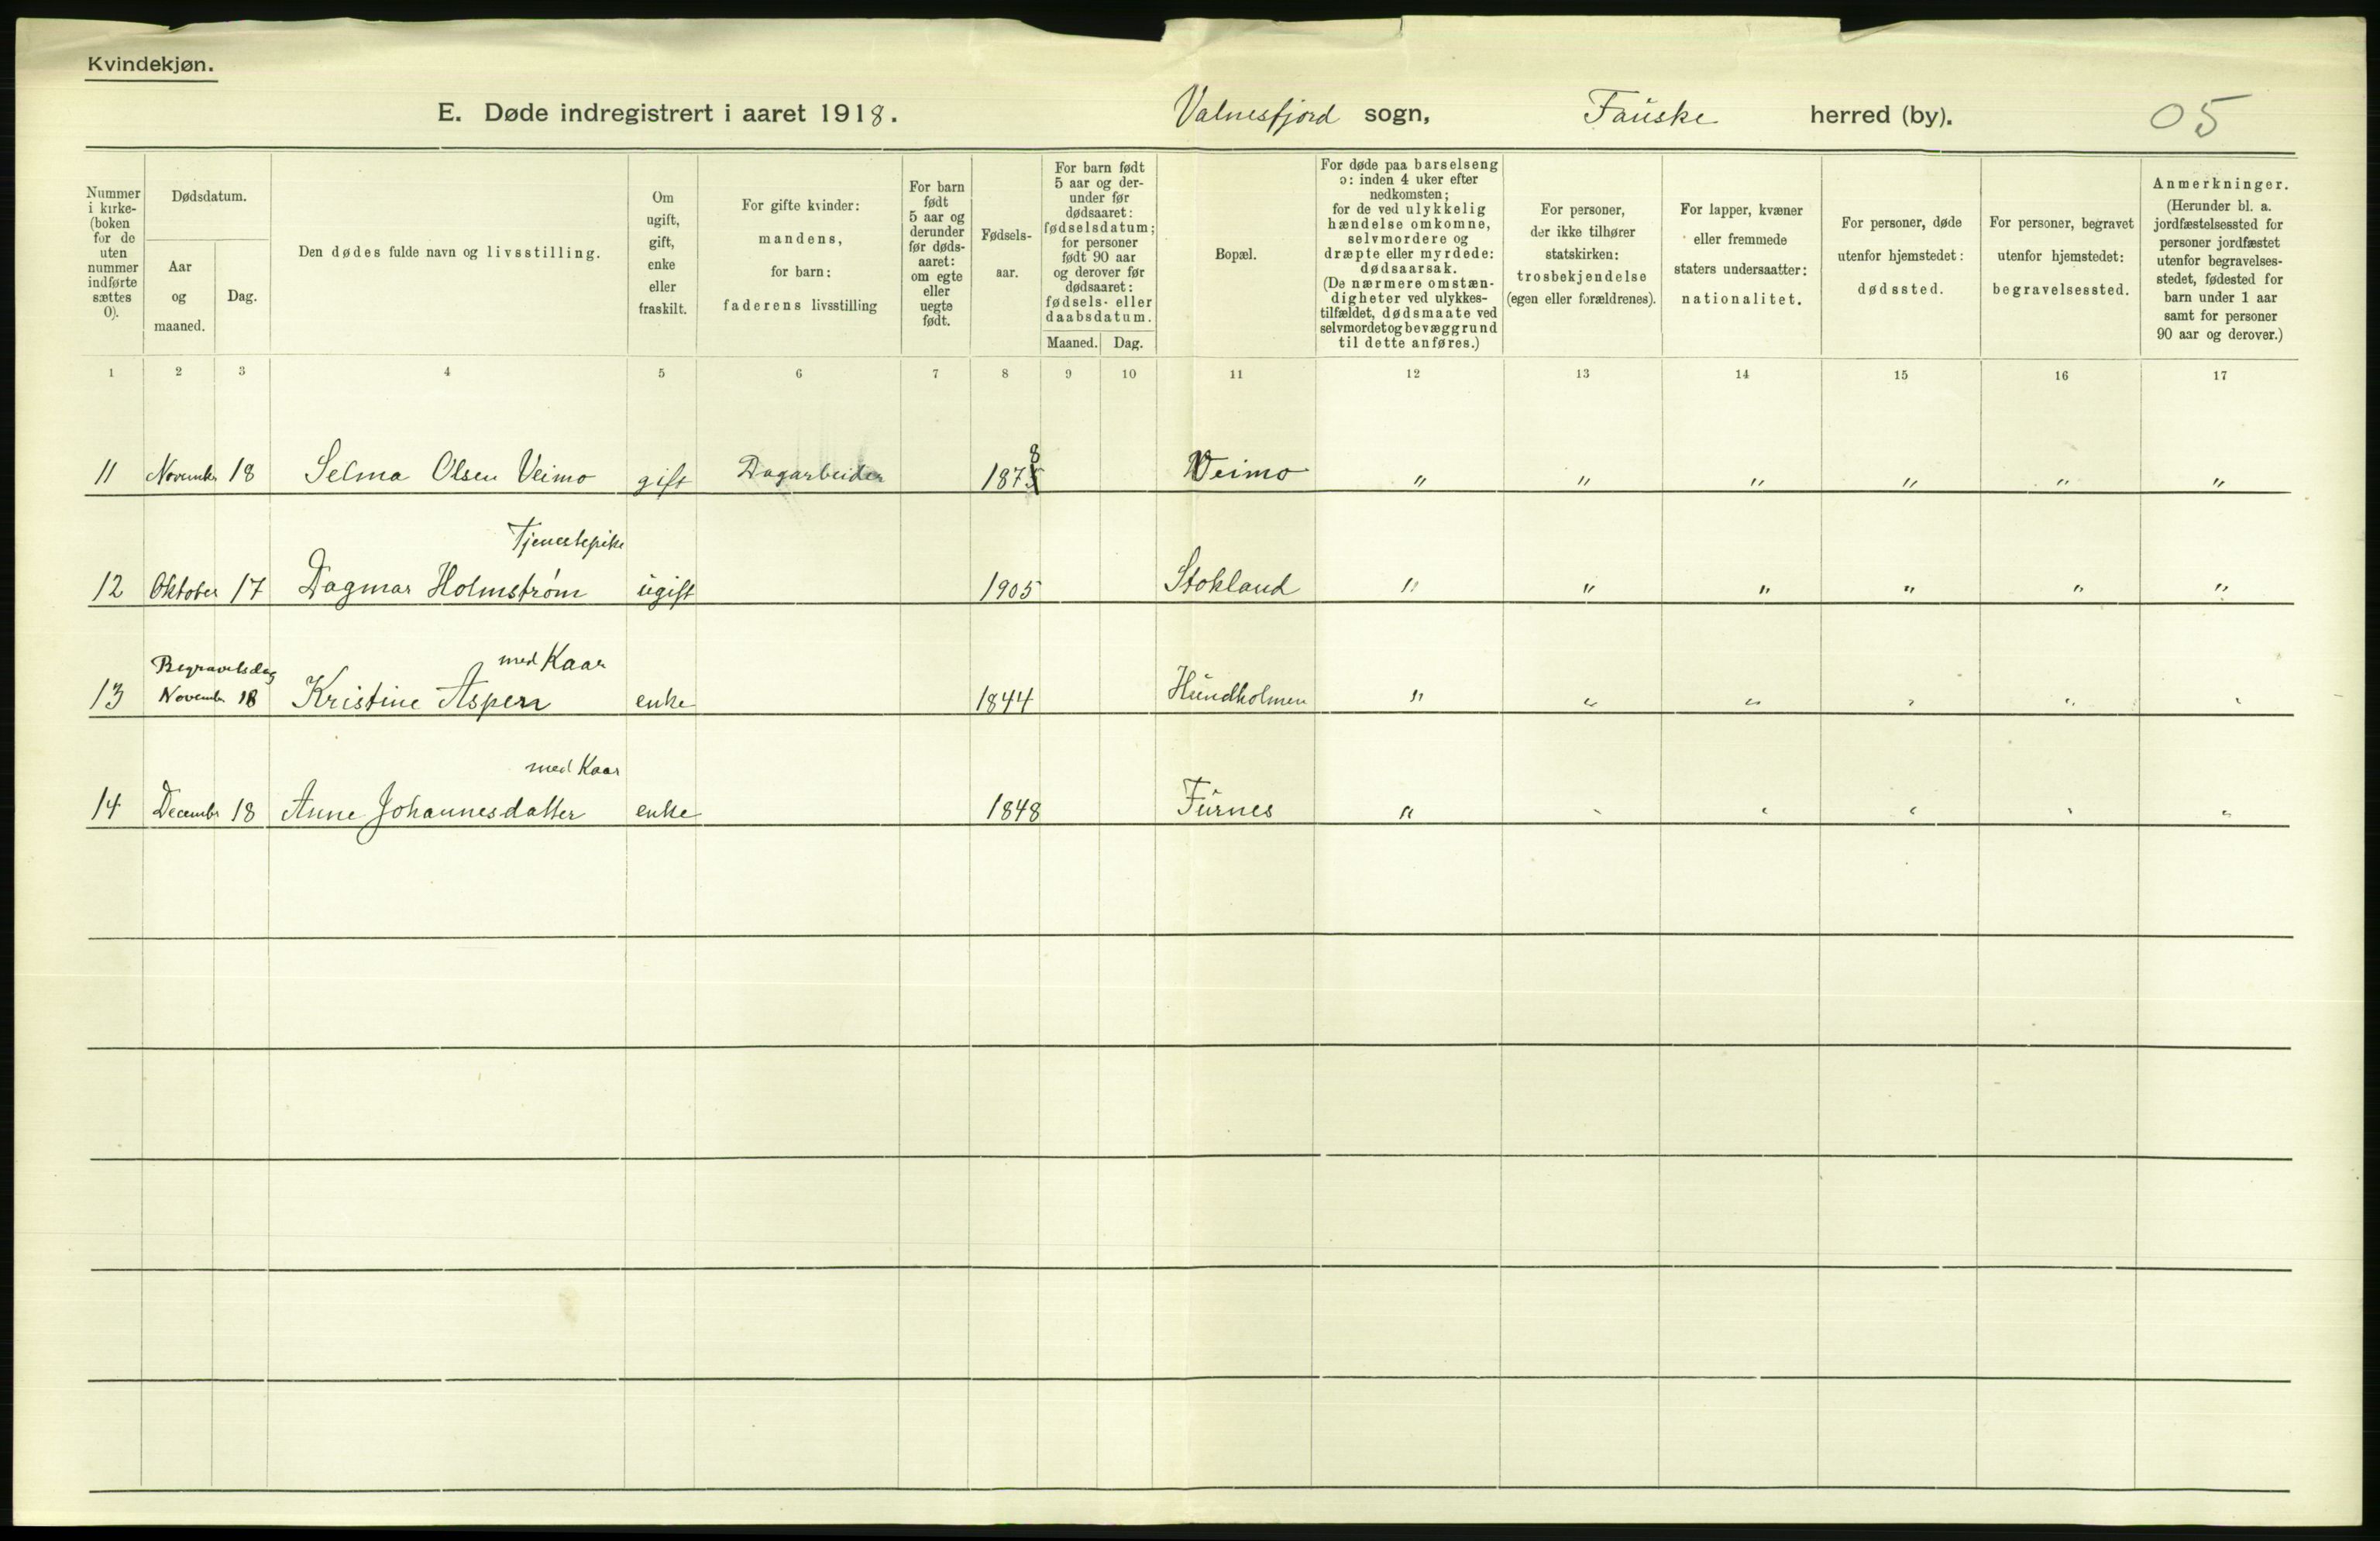 Kvindekjøn.
E. Døde indregistrert i aaret 1918. Valnesfjord sogn, Fauske herred (by). 05
Nummer i kirke- (boken for de uten nummer indførte sættes 0).
Dødsdatum.
Aar og maaned.
Dag.
Den dødes fulde navn og livsstilling.
Om ugift, gift, enke eller fraskilt.
For gifte kvinder: mandens, for barn: faderens livsstilling
For barn født 5 aar og derunder før døds- aaret: om egte eller uegte født.
Fødsels- aar.
For barn født 5 aar og der- under før dødsaaret: fødselsdatum; for personer født 90 aar og derover før dødsaaret: fødsels- eller daabsdatum.
Maaned. Dag.
Bopæl.
For døde paa barselseng ɔ: inden 4 uker efter nedkomsten; for de ved ulykkelig hændelse omkomne, selvmordere og dræpte eller myrdede: dødsaarsak. (De nærmere omstæn- digheter ved ulykkes- tilfældet, dødsmaate ved selvmord et og bevæggrund til dette anføres.)
For personer, der ikke tilhører statskirken: trosbekjendelse (egen eller forældrenes).
For lapper, kvæner eller fremmede staters undersaatter: nationalitet.
For personer, døde utenfor hjemstedet: dødssted.
For personer, begravet utenfor hjemstedet: begravelsessted.
Anmerkninger. (Herunder bl. a. jordfæstelsessted for personer jordfæstet utenfor begravelses- stedet, fødested for barn under 1 aar samt for personer 90 aar og derover.)
1 2 3 4 5 6 7 8 9 10 11 12 13 14 15 16 17
11 November 18 Selma Olsen Veimo gift Dagarbeider 1878 Veimo " " " " " "
Tjenestepike
12 Oktober 17 Dagmar Holmstrøm ugift 1905 Stokland " " " " " "
Begravelsdag med Kaar
13 November 18 Kristine Aspen enke 1844 Hundholmen " " " " " "
med Kaar
14 Decembr 18 Anne Johannesdatter enke 1848 Furnes " " " " " "